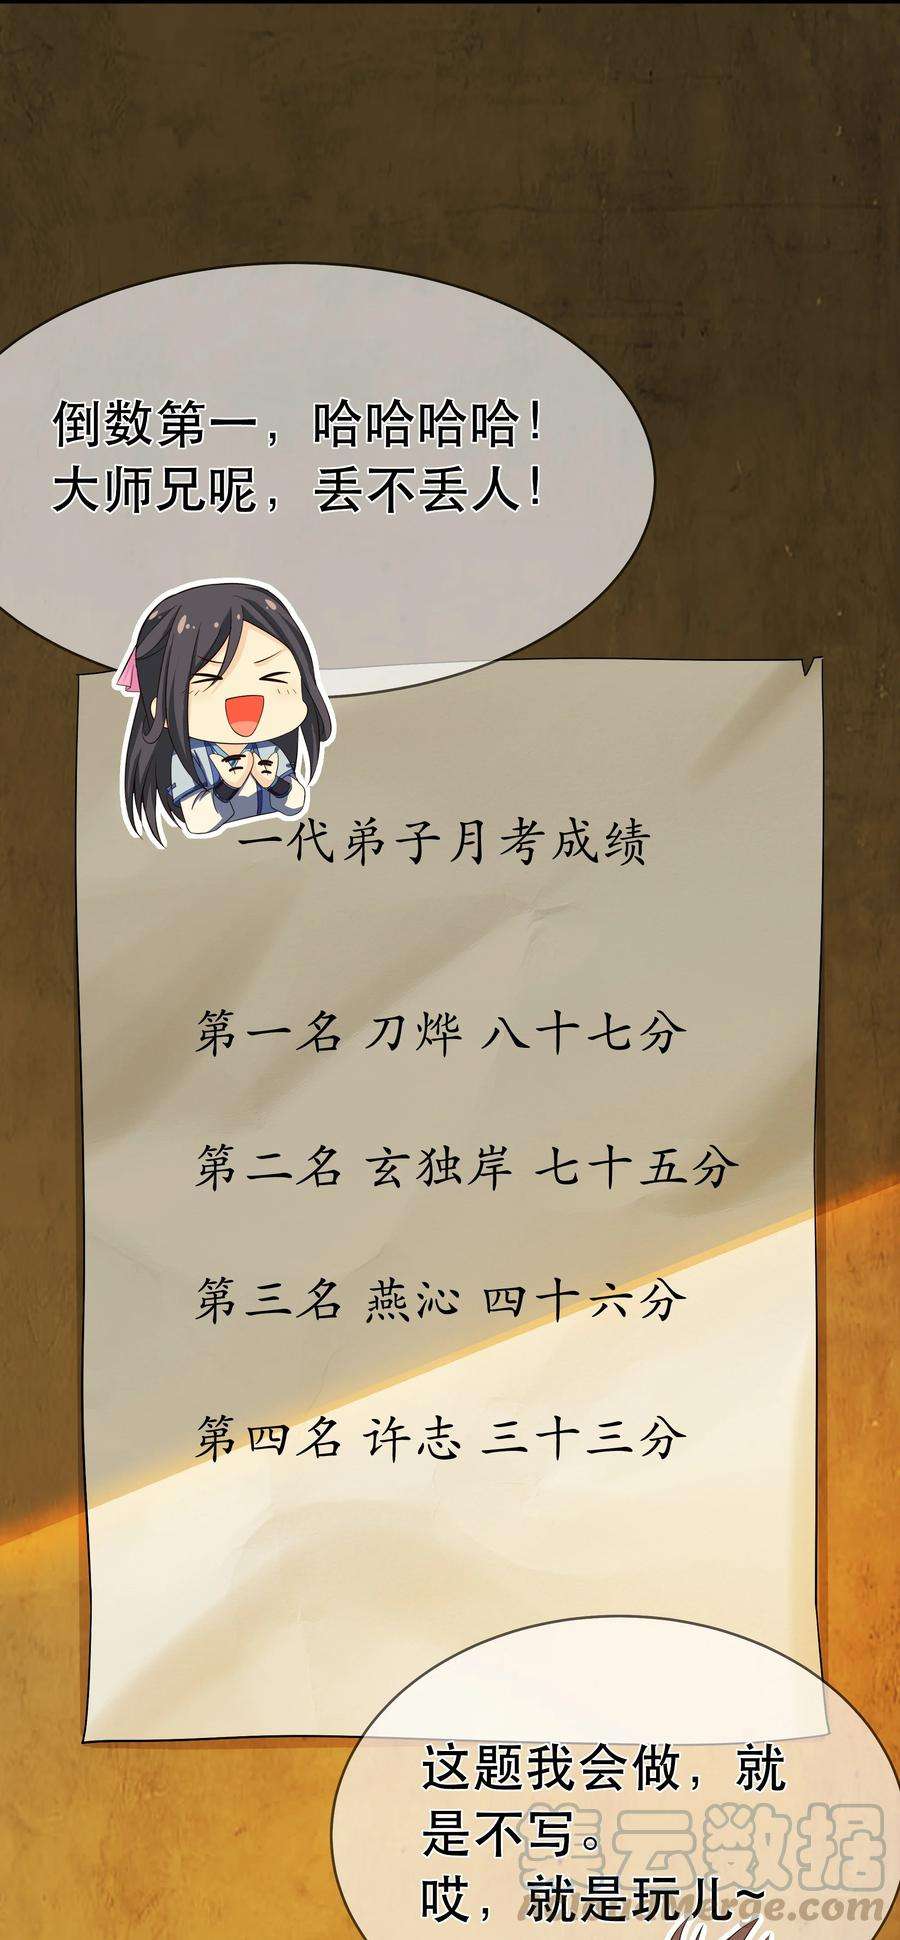 倒数第一，哈哈哈哈！
大师兄呢，丢不丢人！
一代弟子月考成绩
第一名 刀烨 八十七分
第二名 玄独岸 七十五分
第三名 燕沁 四十六分
第四名 许志 三十三分
这题我会做，就
是不写。
哎，就是玩儿~
集云数据